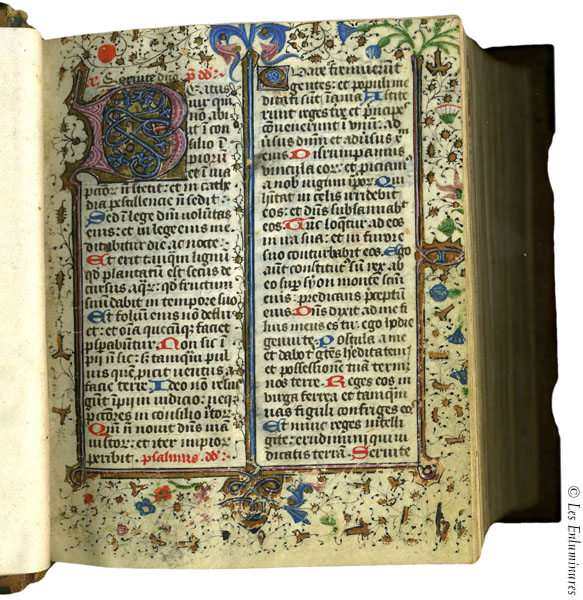 Seruite dño
B eatus
uir qui
nõ abi
it ĩ con
silio ĩ
piorũ
et ĩ uia
pctõr̃ ñ stetit: et in cathe
dra pestilencie ñ sedit
Sed ĩ lege dñi voluntas
eius: et in lege eius me
ditabitur die ac nocte
Et erit tanqm lignũ
qd plantatũ est secus de
cursus aqr̃: qd fructum
suum dabit in tempore suo
Et foliũ eius nõ deflu
et: et oĩa quecunq faciet
prospabũtur Non sic ĩ
pij nõ sic: s tamqm pul
uis quẽ proicit uentus a
facie terre Ideo nõ resur
gũt ĩpij in iudicio: neq
pctõres in consilio iustor
Qm̃ nouit dñs uiam
iustor: et iter impior
peribit psalmus dd
Quare fremuerũt
gentes: et populi me
ditati sũt ĩania Astite
rũt reges tre et prĩcipes
cõuenerunt ĩ vnũ: ad
uersus dñm et aduersus xp̃m
eius Disrumpamus
vincula eor: et piciam
a nob iugum ipor Qui
hĩtat in celis irridebit
eos: et dñs subsannabit
eos Tunc loquetur ad eos
in ira sua: et in furore
suo conturbabit eos Ego
aũt constitut sũ rex ab
eo sup syon montẽ scm̃
eius: predicans preceptũ
eius Dñs dixit ad me fi
lius meus es tu: ego hodie
genui te Postula a me
et dabo t gẽtes heditatem
et possessionẽ tuã termi
nos terre Reges eos in
uirga ferrea et tamqm
uas figuli confringes eos
Et nunc reges intelli
gite: erudimini qui iu
dicatis terrã Seruite
© Les Enluminures